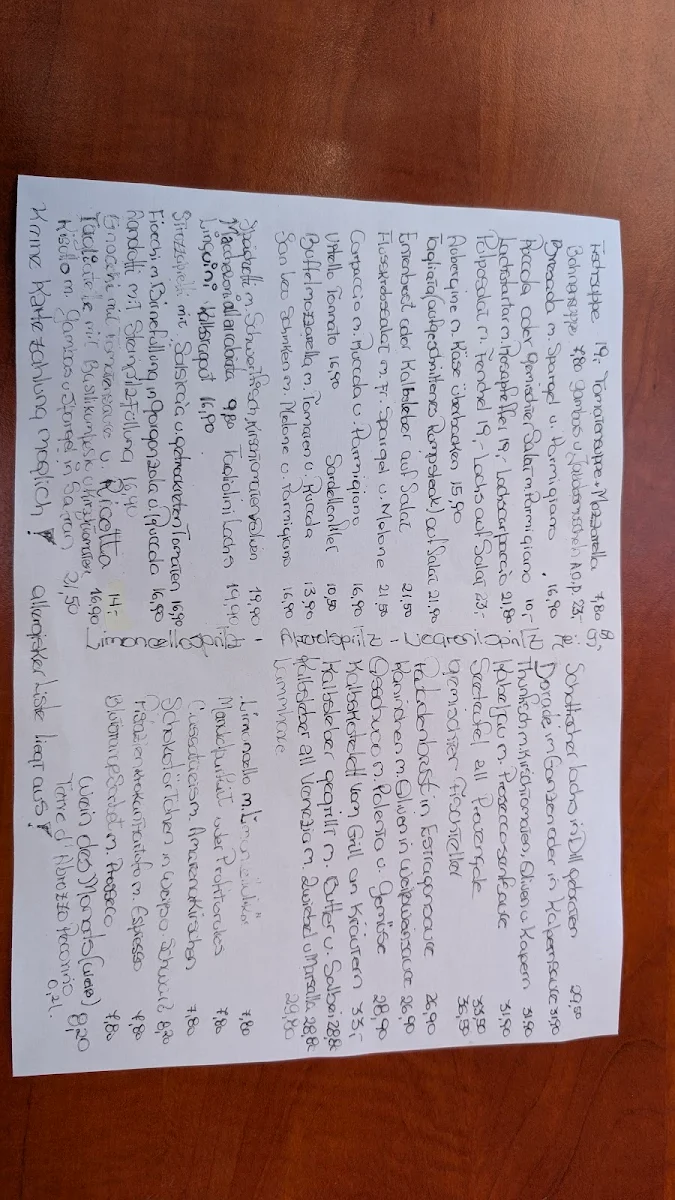 Fischsuppe 19,- Tomatensuppe + Mozzarella 7,80
7,80 Gambas u. 23,-
Bresaola m. Spargel u. Parmigiano 16,90
Rucola oder gemischter Salat m. Parmigiano 10,-
Lachstartar m. Rosa Pfeffer 19,- Lachscarpaccio 21,90
Pulposalat m. Fenchel 19,- Lachs auf Salat 23,-
Aubergine m. Käse überbacken 15,90
Tagliata (aufgeschnittenes Rumpsteak) auf Salat 21,90
Entenbrust oder Kalbsleber auf Salat 21,50
Flusskrebssalat m. Fr. Spargel u. Melone 21,50
Carpaccio m. Rucola u. Parmigiano 16,90
Vitello Tonnato 16,90 Sardellenfilet 10,50
Büffelmozzarella m. Tomaten u. Rucola 13,90
San Leo Schinken m. Melone u. Parmigiano 16,90
Spaghetti m. Schwertfisch, Kirschtomaten u. Oliven 19,90
Maccheroni all arabiata 9,80 Tagliolini Lachs 19,90
Linguini Kalbsragout 16,90
Strozzapreti mit Salsiccia u. getrockneten Tomaten 16,90
Fiocchi m. Birnefüllung in Gorgonzola u. Rucola 16,90
mit Steinpilzfüllung 16,90
Gnocchi mit Tomatensauce u. Ricotta 14,-
mit Basilikumpesto u. Kirschtomaten 16,90
Risotto m. Gambas u. Spargel in Safran 21,50
Keine Kartezahlung möglich!
Schottischer Lachs in Dill gebraten 29,50
Dorade im Ganzen oder in Kapernsauce 31,90
Thunfisch m. Kirschtomaten, Oliven u. Kapern 31,90
Kabeljau m. Proseccosenfsauce 31,90
Seeteufel all Provenzale 33,50
Gemischter Fischteller 36,50
in Estragonsauce 26,90
Kaninchen m. Oliven in Weißweinsauce 26,90
Ossobuco m. Polenta u. Gemüse 28,90
Kalbskotelett vom Grill an Kräutern 33,-
Kalbsleber gegrillt m. Butter u. Salbei 28,80
Kalbsleber all Venezia m. Zwiebel u. Marsala 28,80
29,80
Limoncello m. 7,80
Mandelparfait oder Profiteroles 7,80
m. Amarenakirschen 7,80
Schokotörtchen in Weißer Schoko 8,20
m. Espresso 7,80
m. Prosecco 7,80
Wein des Monats (weiß) 8,20
Terre d'Abruzzo Pecorino 0,2 l.
allergiker Liste liegt aus!